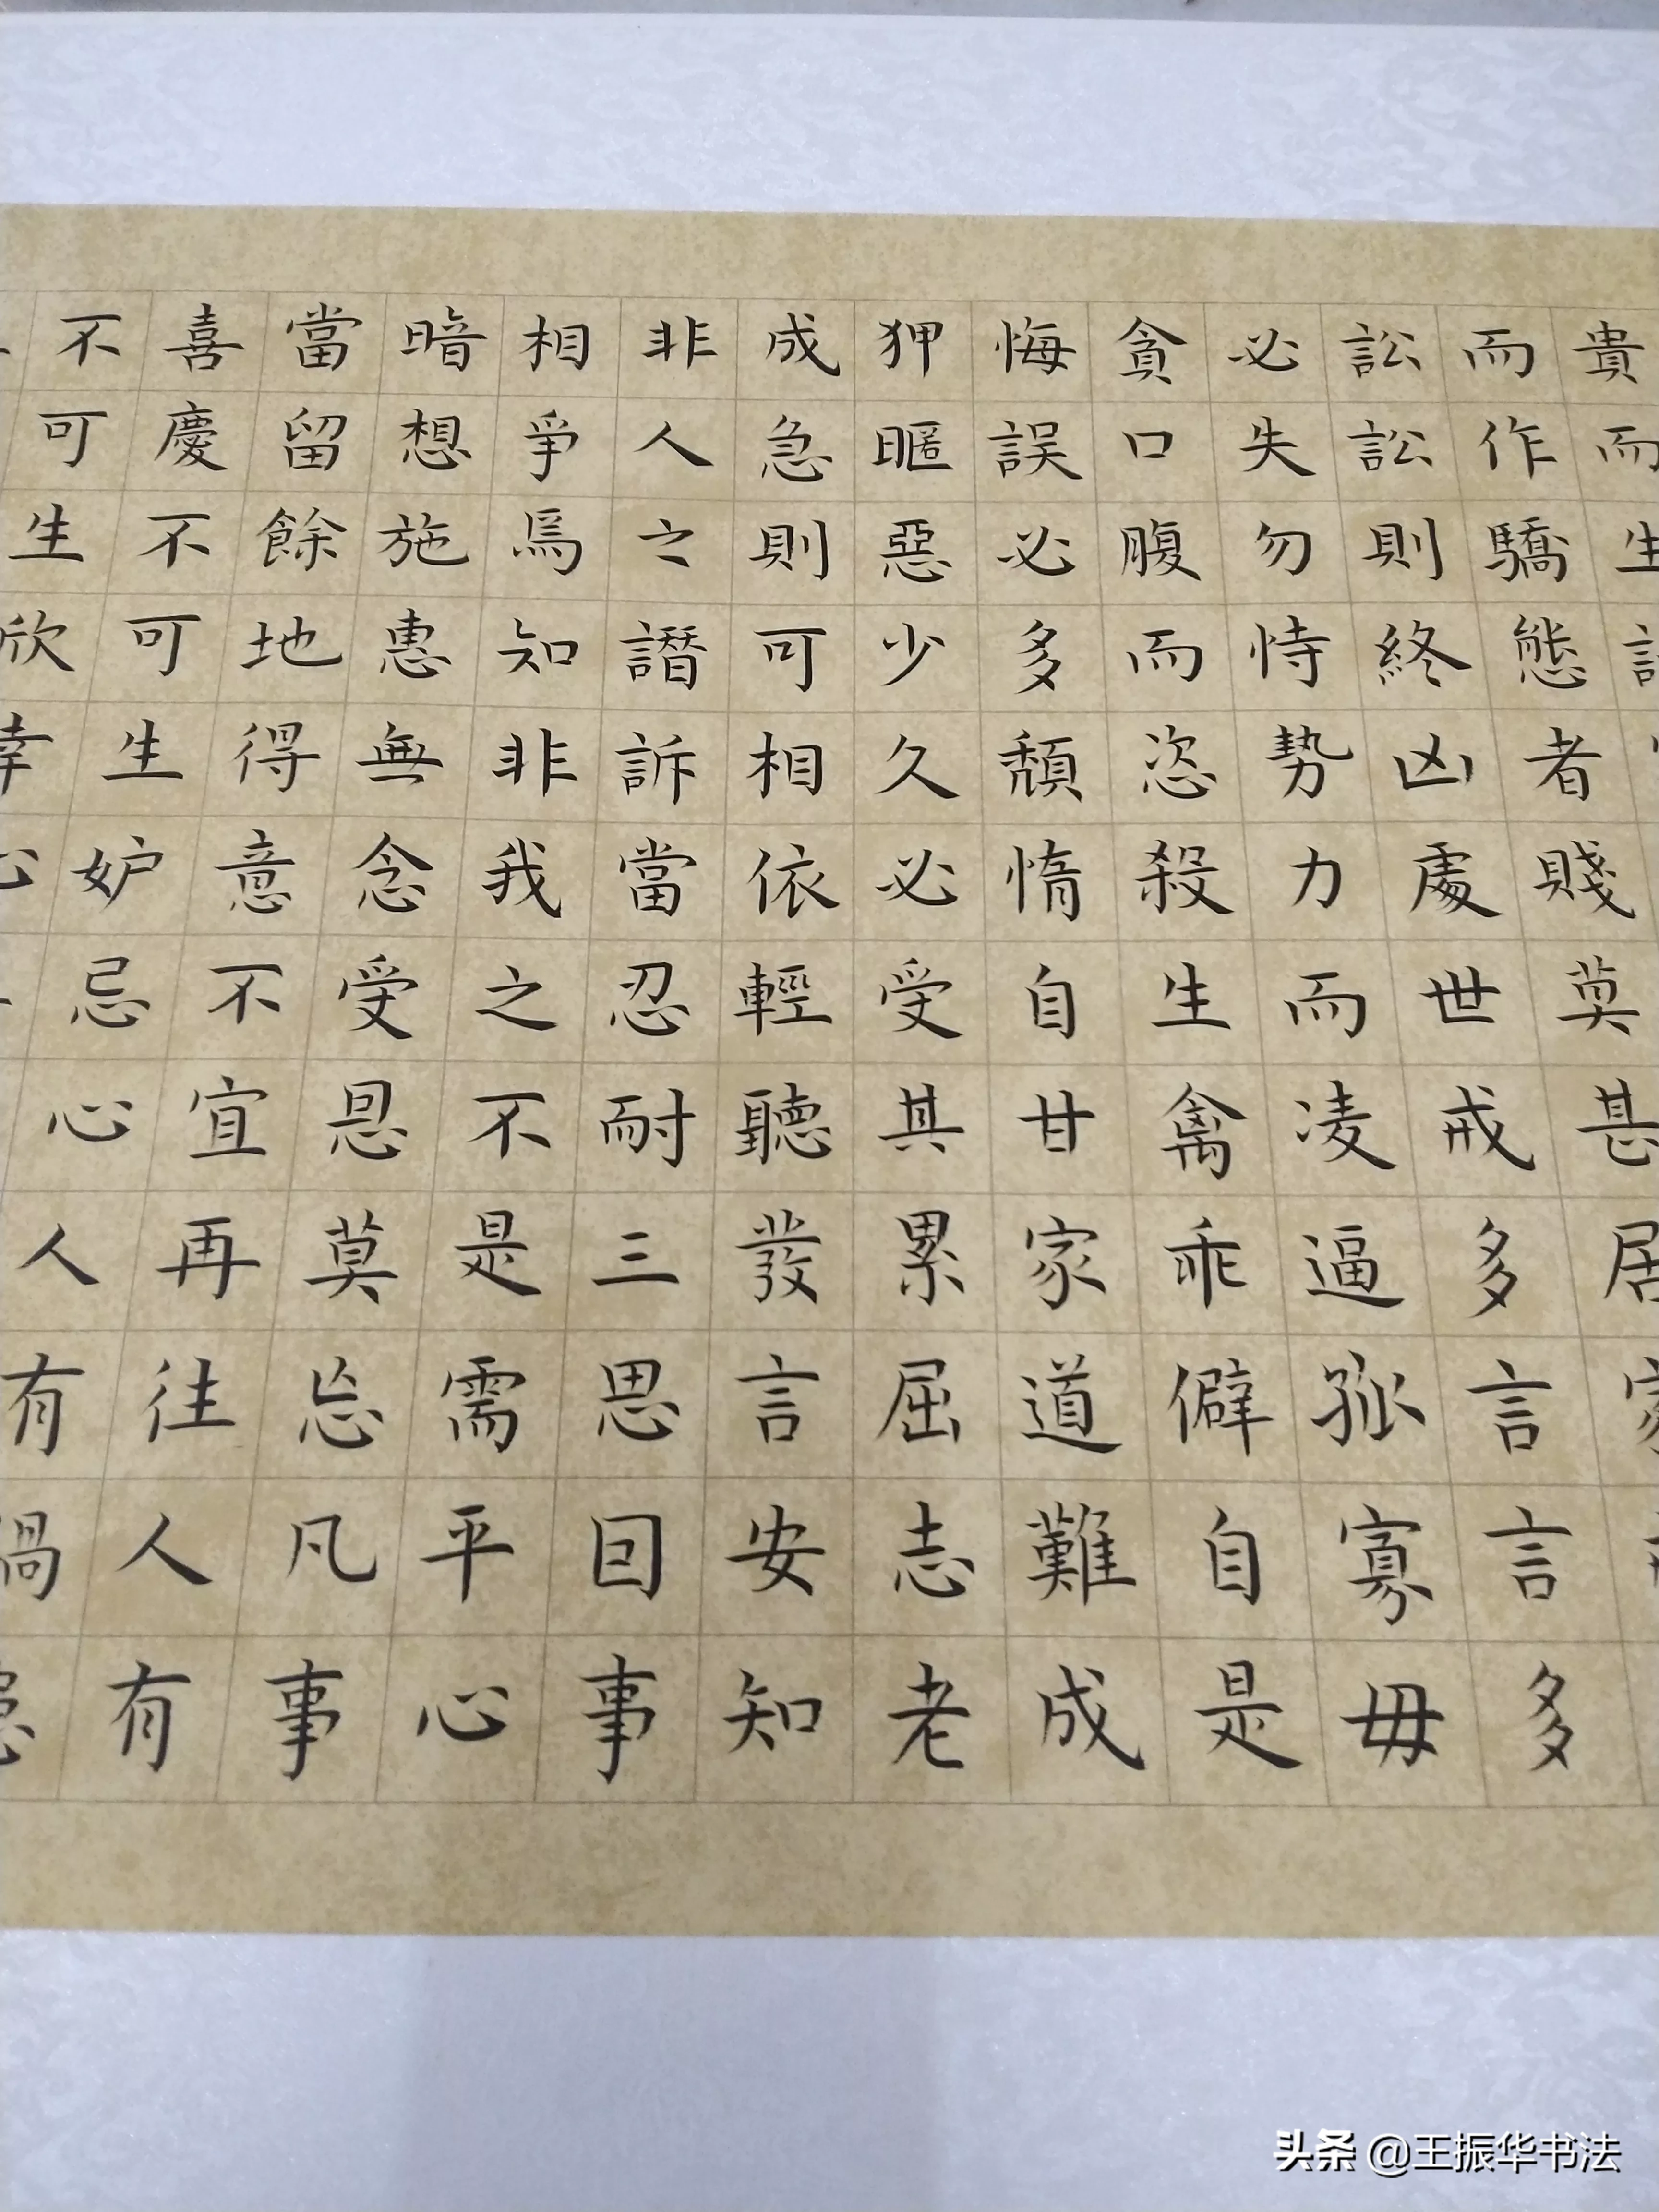 貴而生
而作驕態者賤莫甚居
訟訟則終凶處世戒多言言多
必失勿恃勢力而凌逼孤寡毋
貪口腹而恣殺生禽乖僻自是
悔誤必多頹惰自甘家道難成
狎暱惡少久必受其累屈志老
成急則可相依輕聽發言安知
非人之譖訴當忍耐三思囙事
相爭焉知非我之不是需平心
暗想施惠無念受恩莫忘凡事
當留餘地得意不宜再往人有
喜慶不可生妒忌心人有禍患
不可生欣幸心
头条 @王振华书法